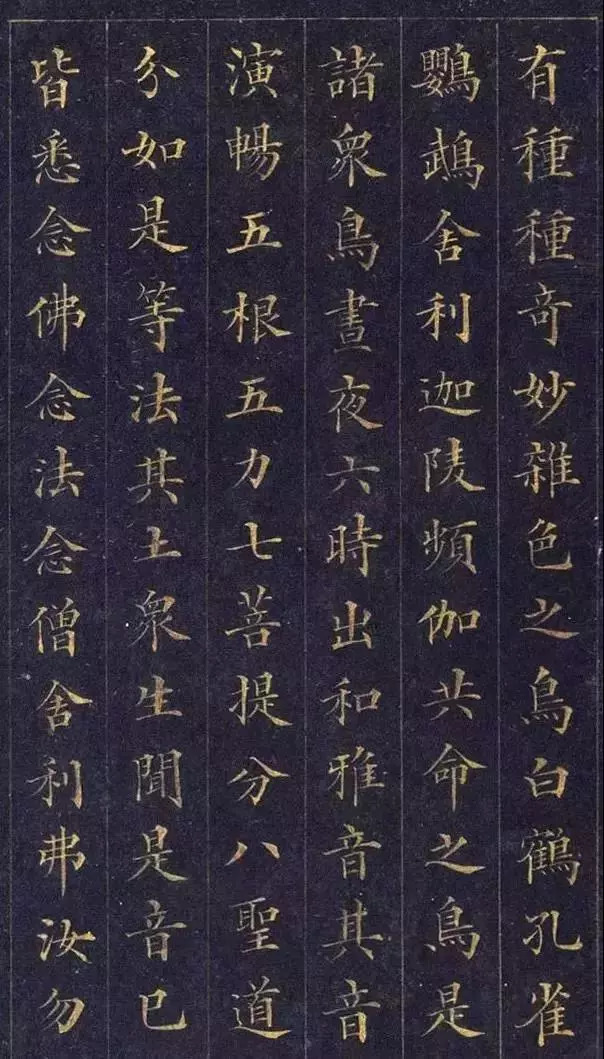 有種種奇妙雜色之鳥白鶴孔雀
鸚鵡舍利迦陵頻伽共命之鳥是
諸眾鳥晝夜六時出和雅音其音
演暢五根五力七菩提分八聖道
分如是等法其土眾生聞是音已
皆悉念佛念法念僧舍利弗汝勿